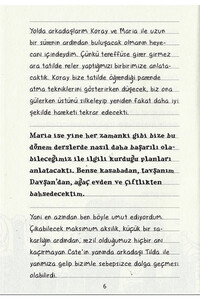 Yolda arkadaşlarım Koray ve Maria ile uzun
bir sürenin ardından buluşacak olmanın heye-
canı içindeydim. Çünkü teneffüse girer girmez
ara tatilde neler yaptığımızı birbirimize anlata-
caktık. Koray bize tatilde öğrendiği parende
atma tekniklerini gösterirken düşecek, biz ona
gülerken üstünü silkeleyip yeniden fakat daha iyi
şekilde hareketi tekrar edecekti.
Maria ise yine her zamanki gibi bize bu
dönem derslerde nasıl daha başarılı ola-
bileceğimiz ile ilgili kurduğu planları
anlatacaktı. Bense kasabadan, tavşanım
Davşan'dan, ağaç evden ve çiftlikten
bahsedecektim.
Yani en azından ben böyle umut ediyordum.
Çıkabilecek maksimum aksilik, küçük bir sa-
karlığın ardından, rezil olduğumuz hiçbir anı
kaçırmayan Cate'in yanında arkadaşı Tilda ile
yanımıza gelip bizimle sebepsizce dalga geçmesi
olabilirdi.
6